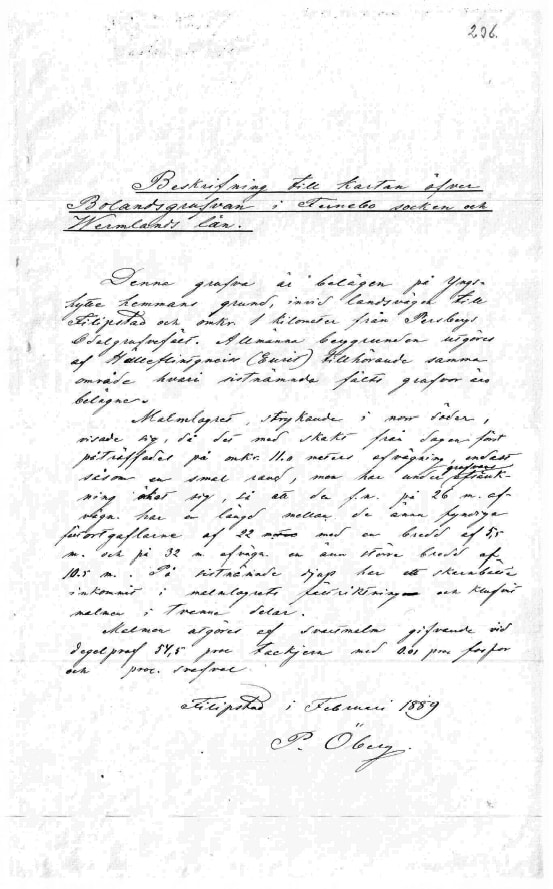 236.
Beskrifning till kartan öfver
Bolandsgrufvan i Fernebo socken och
Wermlands län.
Denna grufva är belägen på Yngs-
hytte hemmans grund, invid landsvägen till
Filipstad och omkr. 1 kilometer från Persbergs
Odalgrufvefält. Allmänna berggrunden utgöres
af Hälleflintgneis (Eurit) tillhörande samma
område hvari sistnämnda fälts grufvor äro
belägne.
Malmlagret, strykande i norr söder,
visade sig, då det med skakt från dagen först
påträffades på omkr. 11.0 meters afvägning, endast
såsom en smal rand, men har under grufvans afsänk-
ning ökat sig, så att den f.n. på 26 m. af-
vägn. har en längd mellan de ännu fyndiga
fältortgaflarne af 22 met med en bredd af 5,5
m. och på 32 m. afvägn. en ännu större bredd af
10.5 m. På sistnämnde djup har ett skarnbälte
inkommit i malmlagrets fältriktning och klufvit
malmen i tvenne delar.
Malmen utgöres af svartmalm gifvande vid
degelprof 57,5 proc tackjern med 0.01 proc fosfor
och proc. svafvel
Filipstad i Februari 1889
P. Öberg.